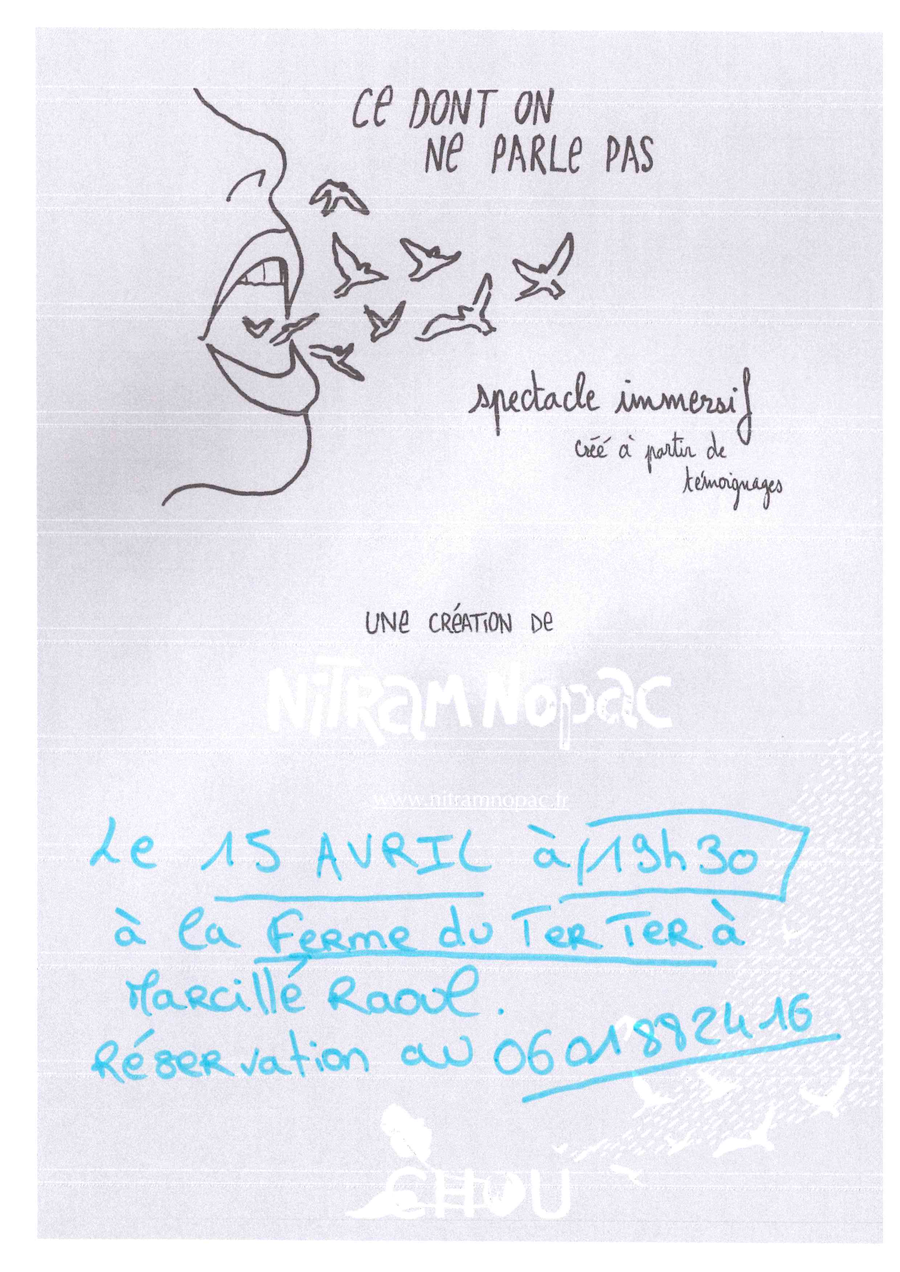 Ce DONT ON
Ne PARLe PAS
spectacle immersif
créé à partir de
témoignages
UNe CRÉATION De
NiTRaM Nopac
www.nitramnopac.fr
Le 15 AVRIL à 19h30
à la Ferme du TerTer à
Marcillé Raoul.
Réservation au 0601882416
CHOU